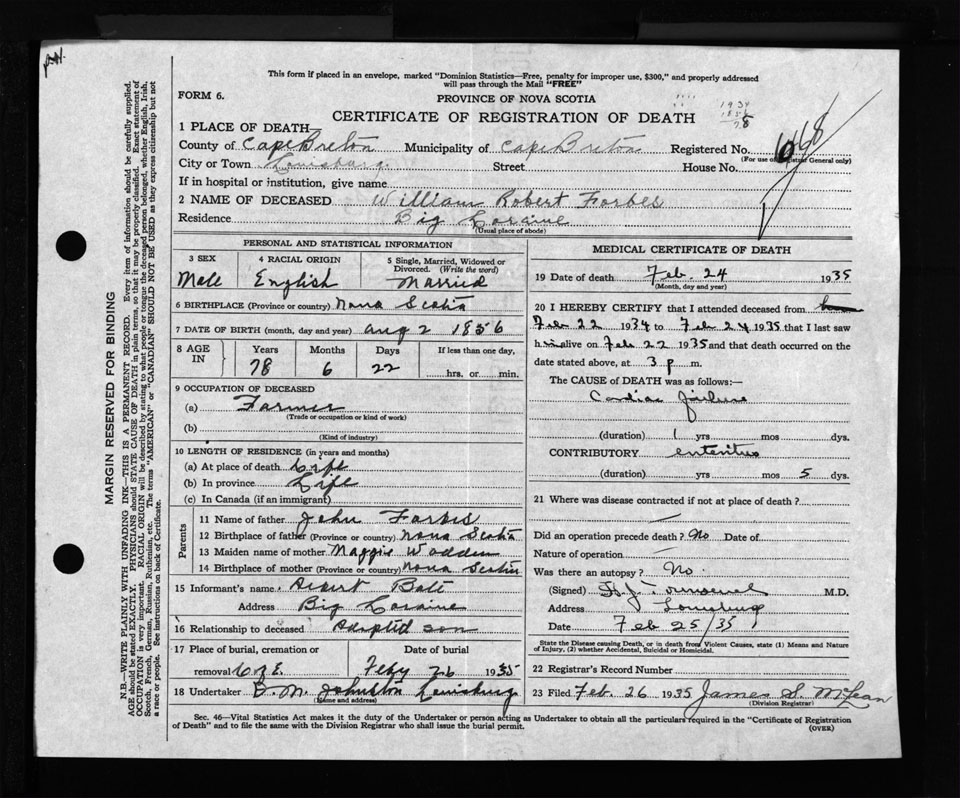 This form if placed in an envelope, marked "Dominion Statistics—Free, penalty for improper use, $300," and properly addressed
will pass through the Mail "FREE"
FORM 6.
PROVINCE OF NOVA SCOTIA
1934
CERTIFICATE OF REGISTRATION OF DEATH
78
1 PLACE OF DEATH
County of Cape Breton Municipality of Cape Breton Registered No.
(For use of Registrar General only)
City or Town Louisburg. Street House No.
If in hospital or institution, give name
2 NAME OF DECEASED William Robert Forbes
Residence Big Loraine
(Usual place of abode)
PERSONAL AND STATISTICAL INFORMATION
3 SEX 4 RACIAL ORIGIN 5 Single, Married, Widowed or Divorced. (Write the word)
Male English Married
6 BIRTHPLACE (Province or country) Nova Scotia
7 DATE OF BIRTH (month, day and year) Aug 2 1856
8 AGE IN Years Months Days If less than one day,
78 6 22 hrs. or min.
9 OCCUPATION OF DECEASED
(a) Farmer
(Trade or occupation or kind of work)
(b)
(Kind of industry)
10 LENGTH OF RESIDENCE (in years and months)
(a) At place of death Life
(b) In province Life
(c) In Canada (if an immigrant)
Parents
11 Name of father John Forbes
12 Birthplace of father (Province or country) Nova Scotia
13 Maiden name of mother Maggie Wadden
14 Birthplace of mother (Province or country) Nova Scotia
15 Informant's name
Address Big Loraine
16 Relationship to deceased Adopted son
17 Place of burial, cremation or removal C of E. Date of burial Feby 26 1935
18 Undertaker B. M. Johnston Louisburg
(Name and address)
MEDICAL CERTIFICATE OF DEATH
19 Date of death Feb. 24 1935
(Month, day and year)
20 I HEREBY CERTIFY that I attended deceased from
Feb 22 1934 to Feb 24 1935 that I last saw
him alive on Feb 22 1935 and that death occurred on the
date stated above, at 3 p m.
The CAUSE of DEATH was as follows:—
Cardiac failure
(duration) 1 yrs mos dys.
CONTRIBUTORY enteritis
(duration) yrs mos 5 dys.
21 Where was disease contracted if not at place of death?
Did an operation precede death? No Date of
Nature of operation
Was there an autopsy? No.
(Signed) M.D.
Address Louisburg
Date Feb 25/35
State the Disease causing Death, or in death from Violent Causes, state (1) Means and Nature of Injury, (2) whether Accidental, Suicidal or Homicidal.
22 Registrar's Record Number
23 Filed Feb. 26 1935 James S. McLean
(Division Registrar)
Sec. 46—Vital Statistics Act makes it the duty of the Undertaker or person acting as Undertaker to obtain all the particulars required in the "Certificate of Registration
of Death" and to file the same with the Division Registrar who shall issue the burial permit.
(OVER)
MARGIN RESERVED FOR BINDING
N.B.—WRITE PLAINLY WITH UNFADING INK—THIS IS A PERMANENT RECORD. Every item of information should be carefully supplied.
AGE should be stated EXACTLY. PHYSICIANS should STATE CAUSE OF DEATH in plain terms, so that it may be properly classified. Exact statement of
OCCUPATION is very important. RACIAL ORIGIN will be described by stating to what people or tongue the deceased person belonged, whether English, Irish,
Scotch, French, German, Russian, Ruthenian, etc. The terms "AMERICAN" or "CANADIAN" SHOULD NOT BE USED as they express citizenship but not
a race or people. See instructions on back of Certificate.